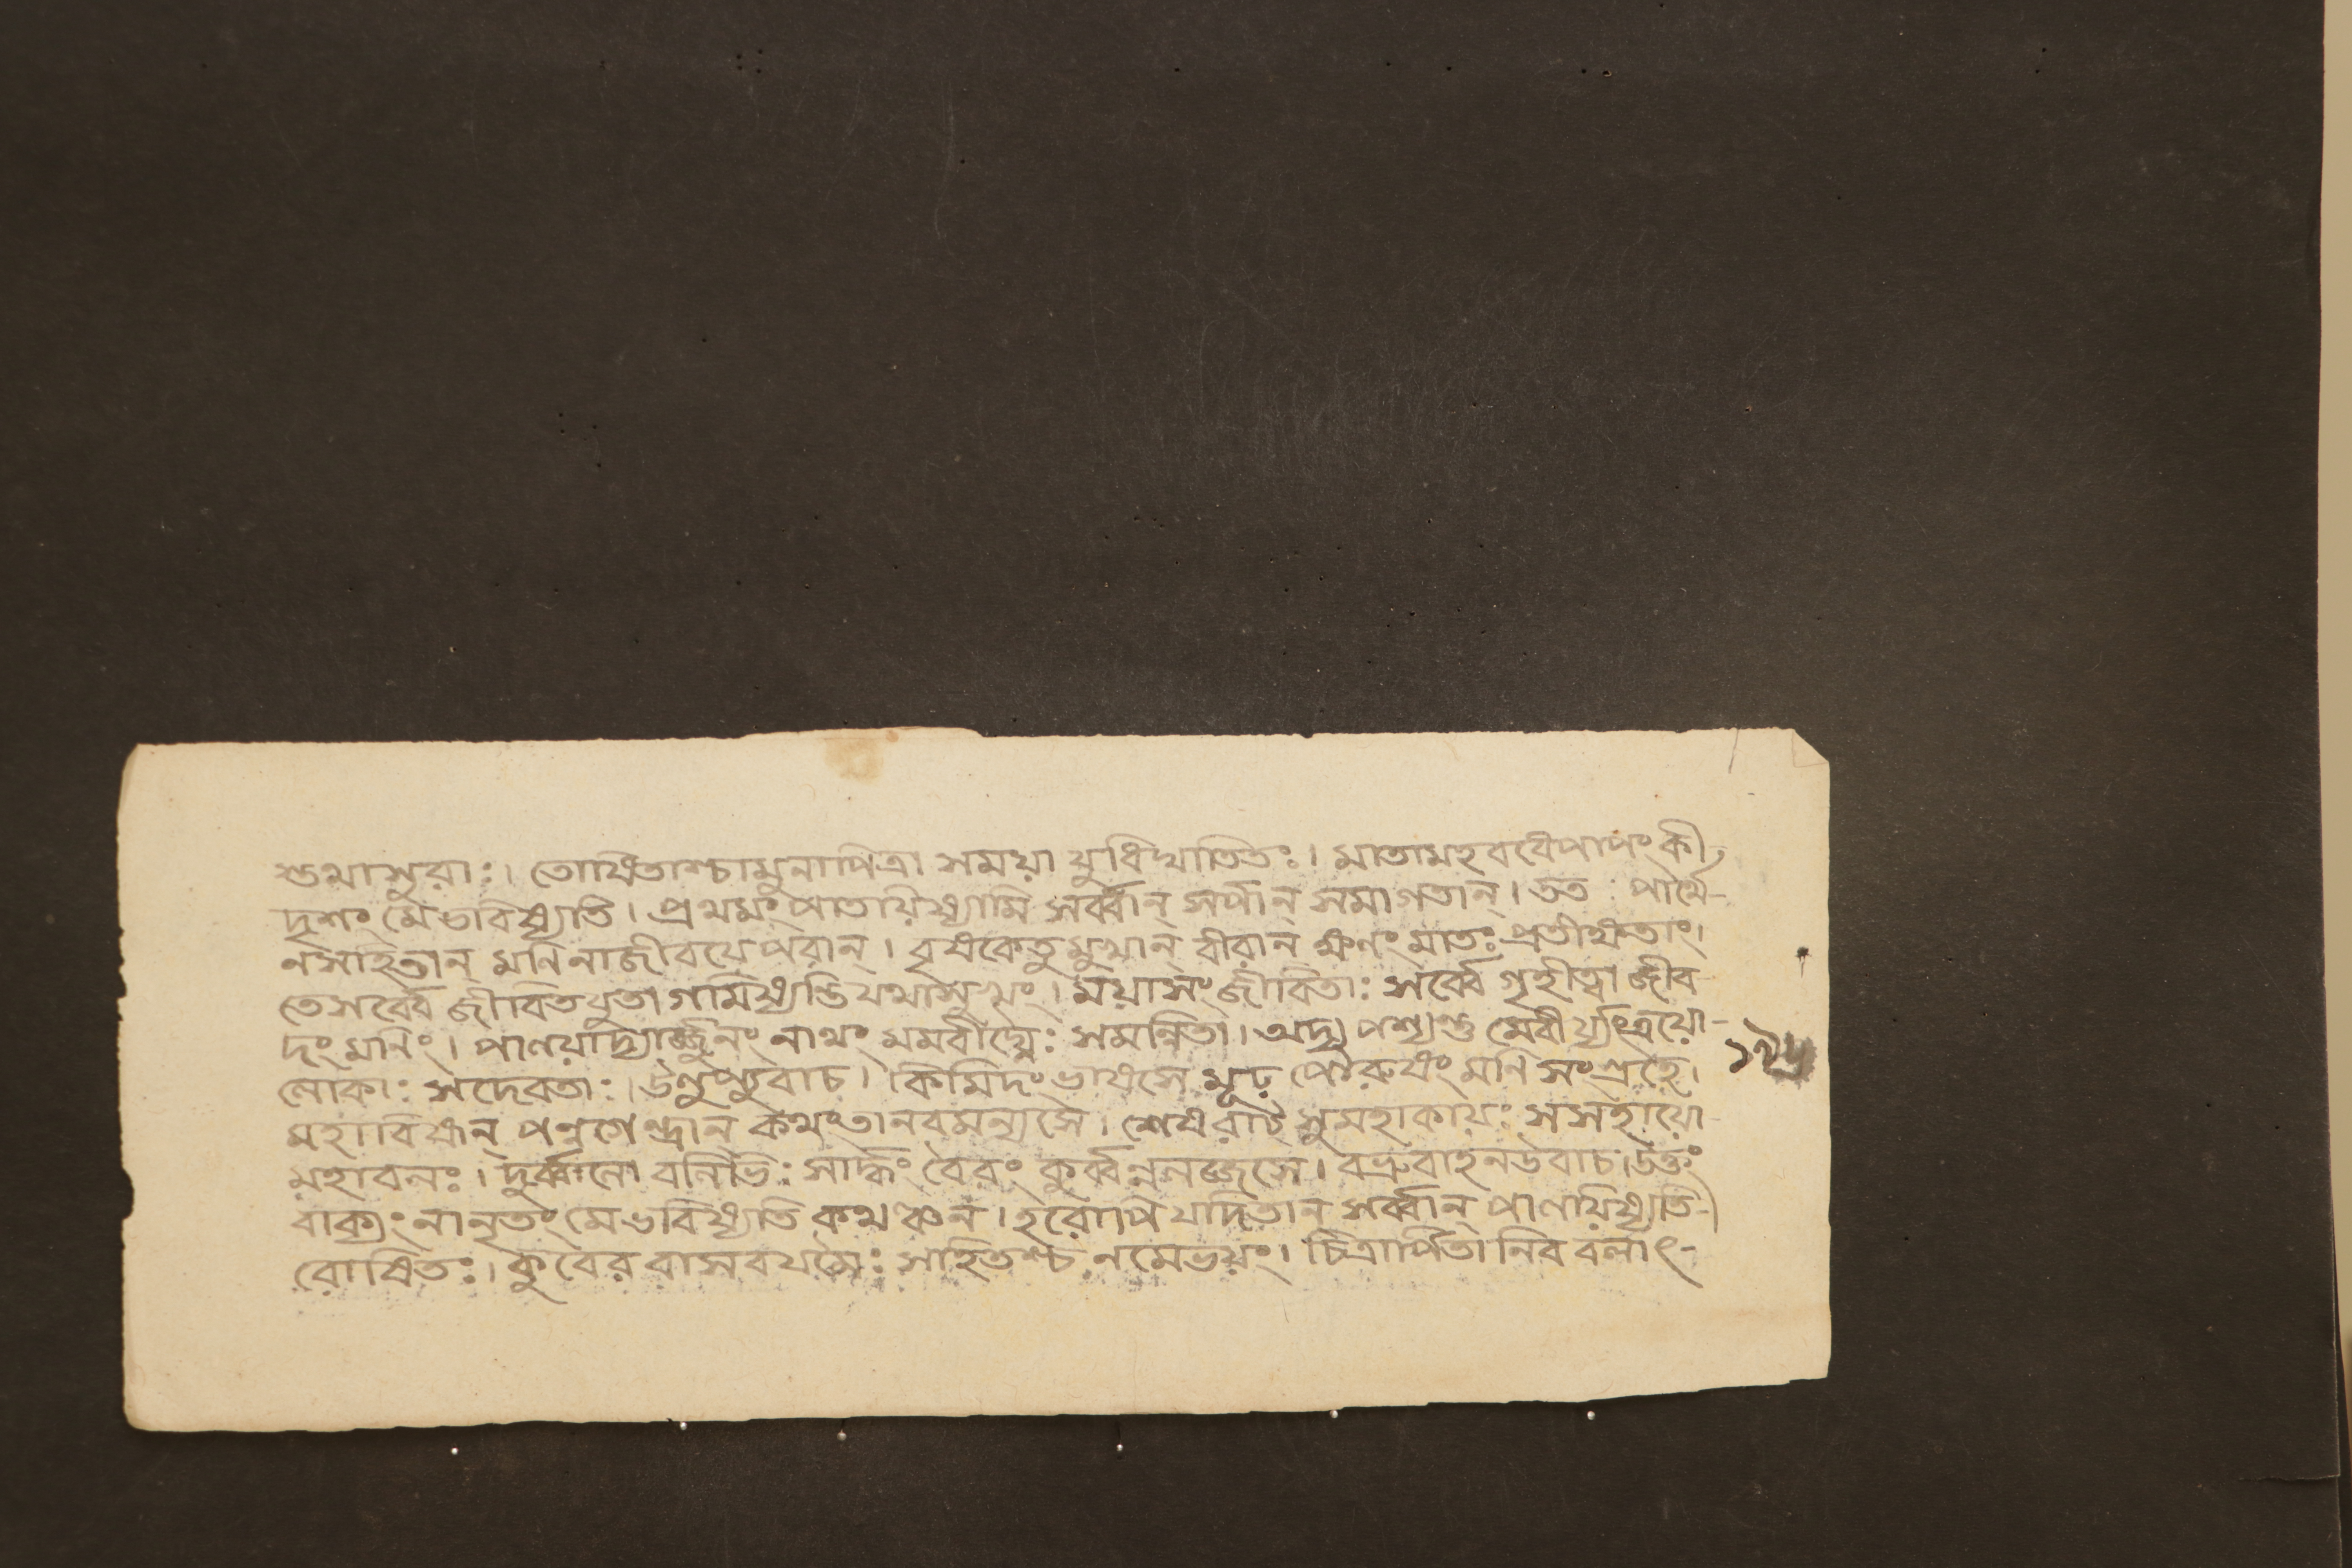 শুথাসুরাঃ। তোষিতাশ্চামুনাপিত্রা সময়া যুধিঘাতিতঃ। মাতামহববেপাপং কী
দৃশং মেভবিষ্যতি। প্রথমং পাতয়িষ্যামি সর্ব্বান্ সর্পান্ সমাগতান্। তত পার্থে-
নসহিতান্ মণিনাজীবযেপরান্। বৃষকেতুমুখান্ বীরান ক্ষণং মাতঃ প্রতীক্ষ্যতাং।
তেসর্ব্বে জীবিতযুতা গমিষ্যন্তি যথাসুখং। ময়াসংজীবিতাঃ সর্ব্বে গৃহীত্বা জীব-
দং মণিং। পালয়াদ্যার্জ্জুনং নাথং মমবীর্য্যৈঃ সমন্বিতা। অদ্য পশ্যন্তু মেবীর্য্যংত্রয়ো-
লোকাঃ সদেবতাঃ। উলুপ্যুবাচ। কিমিদং ভাষসে মূঢ় পৌরুষং মণি সংগ্রহে।
মহাবিষান্ পন্নগেন্দ্রান কথংতানবমন্যসে। শেষরাট্ সুমহাকায়ঃ সসহায়ো
মহাবলঃ। দুর্ব্বলো বলিভিঃ সার্দ্ধং বৈরং কুর্ব্বন্নলজ্জসে। বভ্রুবাহনউবাচ। উক্তং
বাক্যং নানৃতং মেভবিষ্যতি কথঞ্চন। হরোপি যদিতান সর্ব্বান্ পালয়িষ্যতি-
রোষিতঃ। কুবের বাসব যমৈঃ সহিতশ্চ নমেভয়ং। চিত্রার্পিতা নিব বলাৎ-